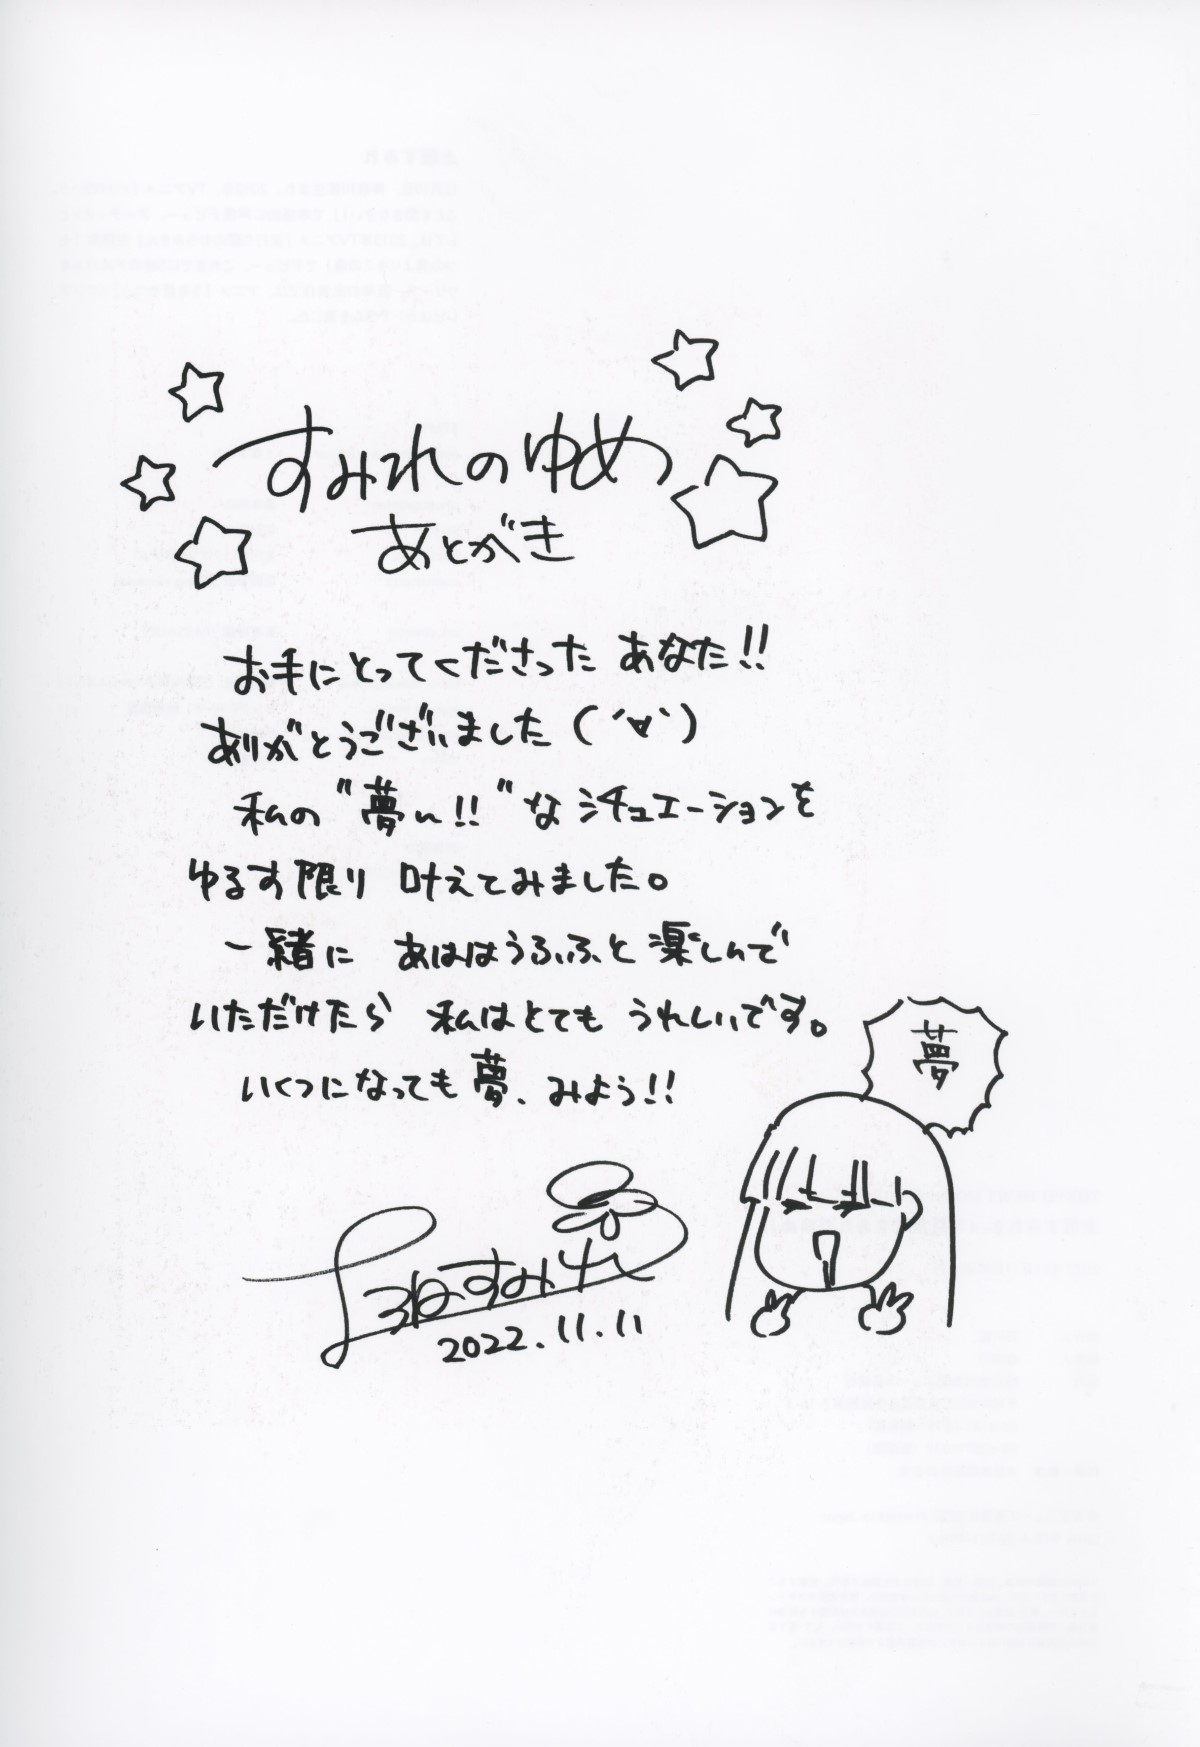 すみれのゆめ
あとがき
お手にとってくださった あなた!!
ありがとうございました(´∀`)
私の"夢ん!!"なシチュエーションを
ゆるす限り 叶えてみました。
一緒に あははうふふと楽しんで
いただけたら 私はとても うれしいです。
いくつになっても夢、みよう!!
夢
すみれ
2022.11.11